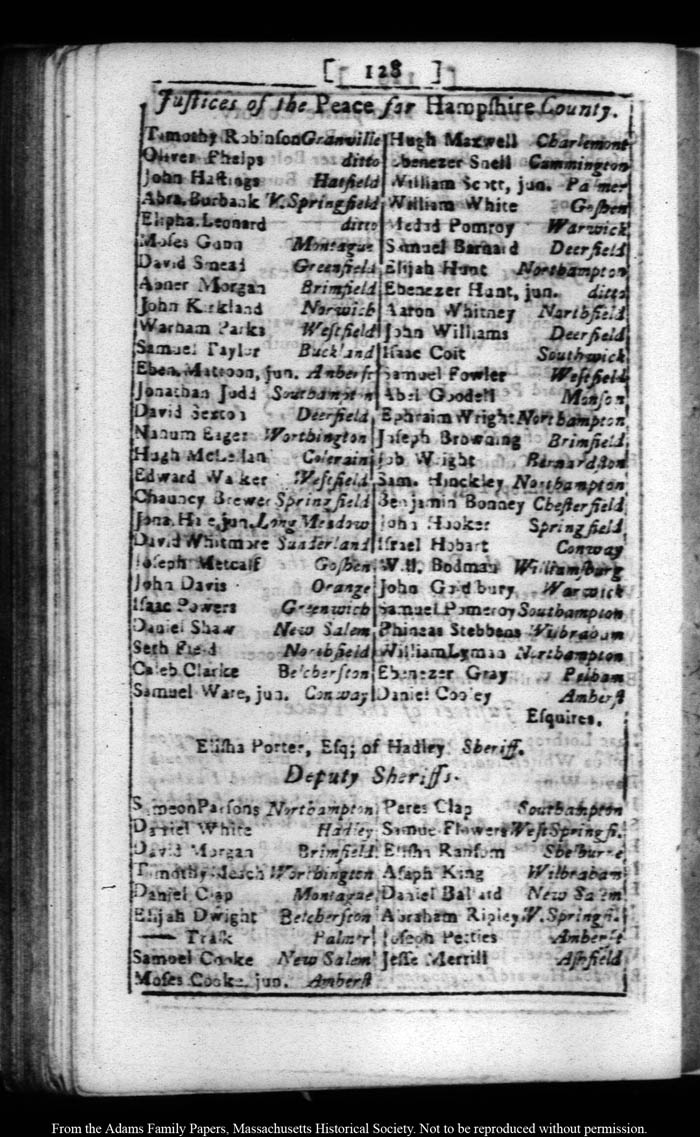 [ 128 ]
Justices of the Peace for Hampshire County.
Timothy Robinson Granville
Oliver Phelps ditto
John Hastings Hatfield
Abra. Burbank W. Springfield
Elipha. Leonard ditto
Moses Gunn Montague
David Smead Greenfield
Abner Morgan Brimfield
John Kirkland Norwich
Warham Parks Westfield
Samuel Taylor Buckland
Eben. Mattoon, jun. Amherst
Jonathan Judd Southampton
David Sexton Deerfield
Nahum Eager Worthington
Hugh McLellan Colerain
Edward Walker Westfield
Chauncy Brewer Springfield
Jona. Hale, jun. Long Meadow
David Whitmore Sunderland
Joseph Metcalf Goshen
John Davis Orange
Isaac Powers Greenwich
Daniel Shaw New Salem
Seth Field Northfield
Caleb Clarke Belcherston
Samuel Ware, jun. Conway
Hugh Maxwell Charlemont
Ebenezer Snell Cummington
William Scott, jun. Palmer
William White Goshen
Medad Pomroy Warwick
Samuel Barnard Deerfield
Elijah Hunt Northampton
Ebenezer Hunt, jun. ditto
Aaron Whitney Northfield
John Williams Deerfield
Isaac Coit Southwick
Samuel Fowler Westfield
Abel Goodell Monson
Ephraim Wright Northampton
Joseph Browning Brimfield
Job Wright Bernardston
Sam. Hinckley Northampton
Benjamin Bonney Chesterfield
John Hooker Springfield
Israel Hobart Conway
W.H. Bodman Williamsburg
John Goldbury Warwick
Samuel Pomeroy Southampton
Phineas Stebbens Wilbraham
William Lyman Northampton
Ebenezer Gray Pelham
Daniel Cooley Amherst
Esquires.
Elisha Porter, Esq; of Hadley. Sheriff.
Deputy Sheriffs.
Simeon Parsons Northampton
Daniel White Hadley
David Morgan Brimfield
Timothy Meach Worthington
Daniel Clap Montague
Elijah Dwight Belcherston
—— Trask Palmer
Samuel Cooke New Salem
Moses Cooke, jun. Amherst
Peres Clap Southampton
Samuel Flowers West Springfi.
Elisha Ransom Shelburne
Asaph King Wilbraham
Daniel Ballard New Salem
Abraham Ripley W. Springfi.
Joseph Petties Amherst
Jesse Merrill Ashfield
From the Adams Family Papers, Massachusetts Historical Society. Not to be reproduced without permission.